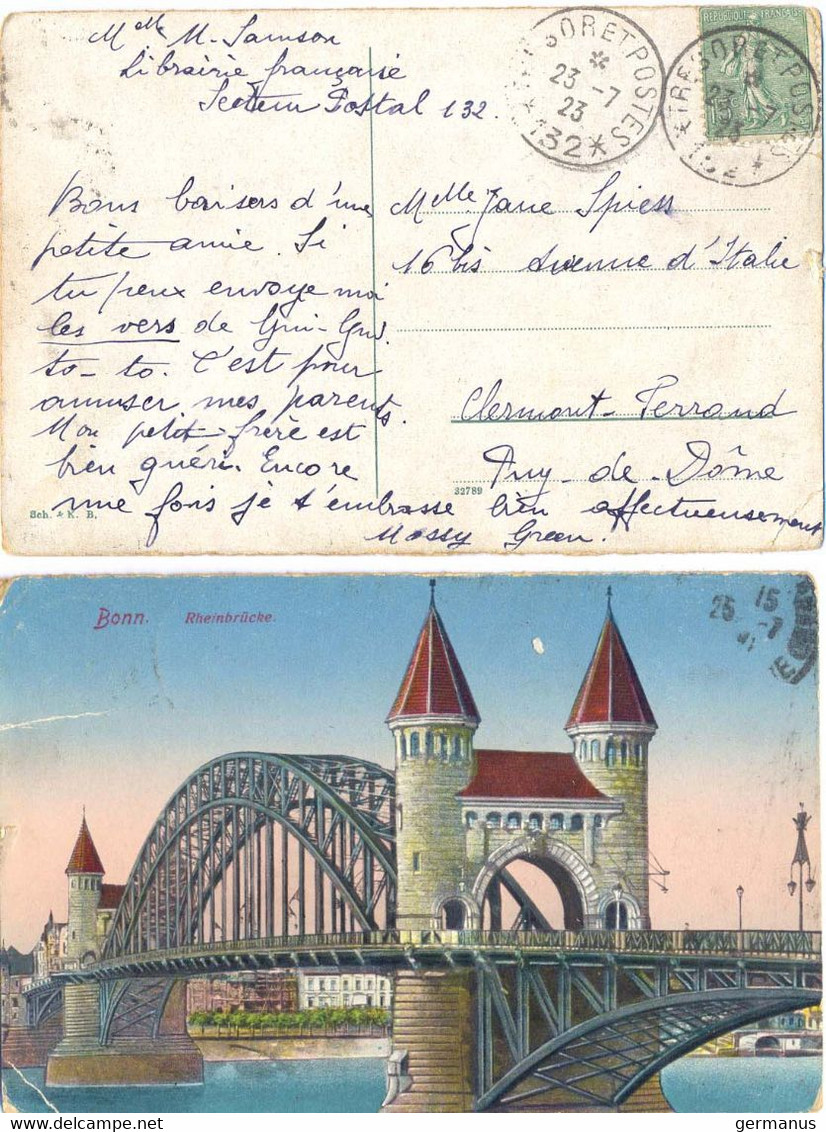 Mlle M. Samson
Librairie française
Secteur Postal 132.
TRESOR ET POSTES
23 -7
23
*132*
REPUBLIQUE FRANCAISE
TRESOR ET POSTES
23 -7
23
*132*
Bons baisers d'une
petite amie. Si
tu peux envoye moi
les vers de Gui-Gus.
to-to. C'est pour
amuser mes parents.
Mon petit frère est
bien guéri. Encore
une fois je t'embrasse bien affectueusement
Mossy Green.
Mlle Jane Spiess
16 bis Avenue d'Italie
Clermont-Ferrand
Puy-de-Dôme
32789
Sch. & K. B.
Bonn. Rheinbrücke.
15
25 -7
germanus